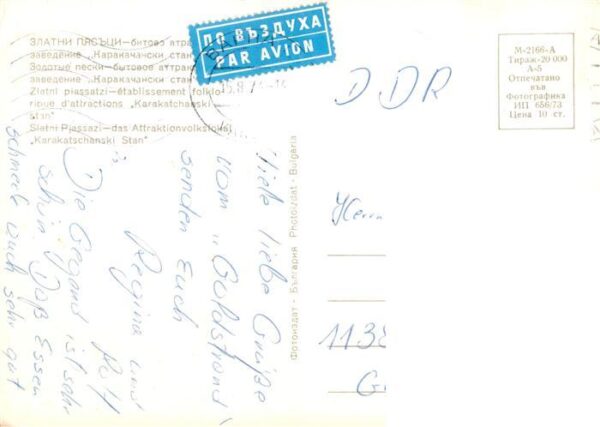 ПО ВЪЗДУХА
PAR AVION
ЗЛАТНИ ПЯСЪЦИ—битово атра
заведение „Каракачански стан
Золотые пески—бытовое аттрак
заведение „Каракачански стан
Zlatni piassatzi—établissement folklo
rique d'attractions „Karakatchanski
Stan"
Slatni Pjassazi—das Attraktionvolkslokal
„Karakatschanski Stan"
М-2166-А
Тираж-20 000
А-5
Отпечатано
във
Фотографика
ИП 656/73
Цена 10 ст.
DDR
Herrn
1138
Фотоиздат - България - Photoizdat - Bulgaria
Viele liebe Grüße
vom „Goldstrand"
senden Euch
Regina und
Rolf
Die Gegend ist sehr
schön. Das Essen
schmeckt auch sehr gut